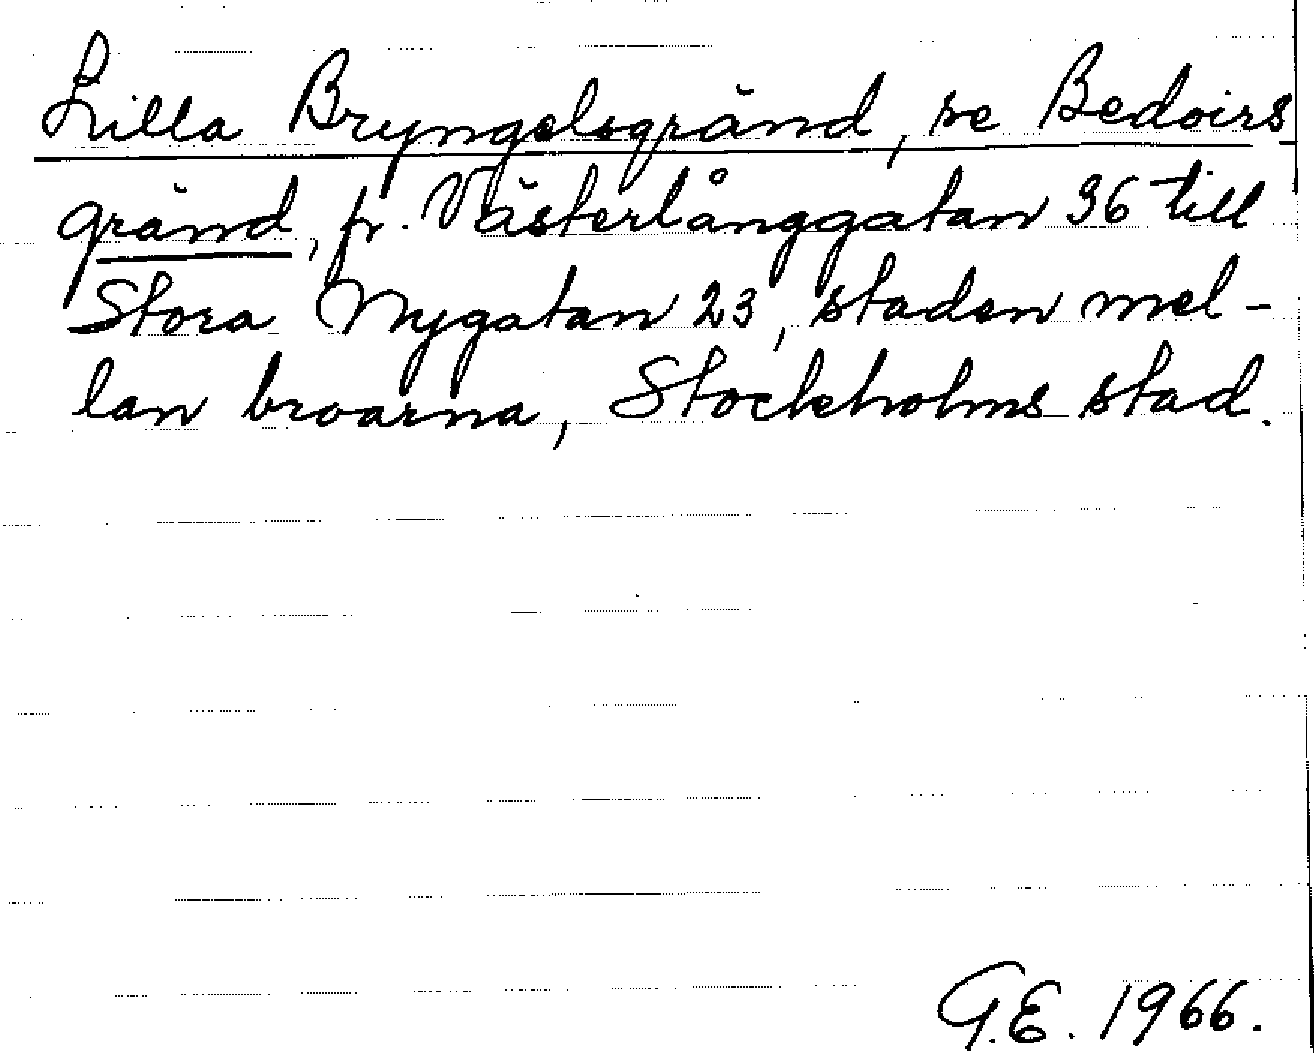 Lilla Bryngelsgränd, se Bedoirs
gränd, fr. Västerlånggatan 36 till
Stora Nygatan 23, staden mel-
lan broarna, Stockholms stad.
G.E. 1966.